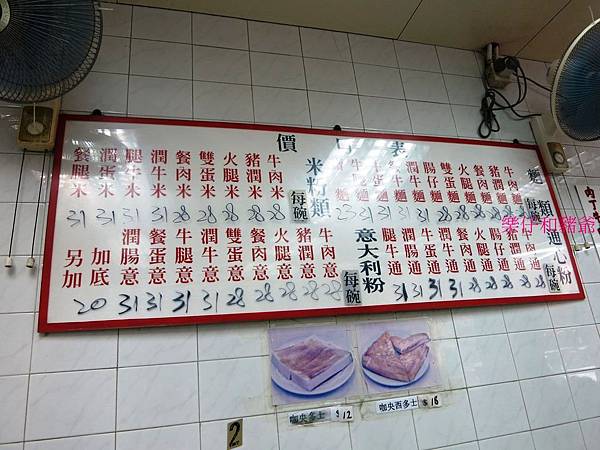 價目表
麵類 每碗
牛肉麵 28
豬潤麵 28
餐肉麵 28
雙蛋麵 28
腸仔麵 28
米粉類 每碗
牛肉米 28
豬潤米 28
火腿米 28
雙蛋米 28
餐肉米 28
潤牛米 31
腿牛米 31
潤腿米 31
餐腿米 31
通心粉 每碗
牛肉通 28
豬潤通 28
腸仔通 28
火腿通 28
餐肉通 28
雙蛋通 28
潤牛通 31
牛腿通 31
意大利粉 每碗
牛肉意 28
豬潤意 28
火腿意 28
餐肉意 28
雙蛋意 28
潤牛意 31
牛腿意 31
餐蛋意 31
潤腸意 31
加底
另加 20
樂仔和豬爺
咖央多士 $12
咖央西多士 $18
2
肉丁